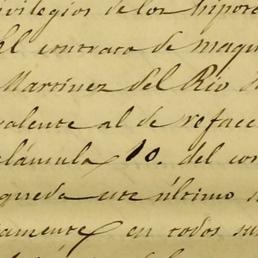 vilegios de los hipote
El contrato de maqu
Martinez del Rio s
valente al de refacc
cláusula 10. del con
queda este último s
tamente en todos su